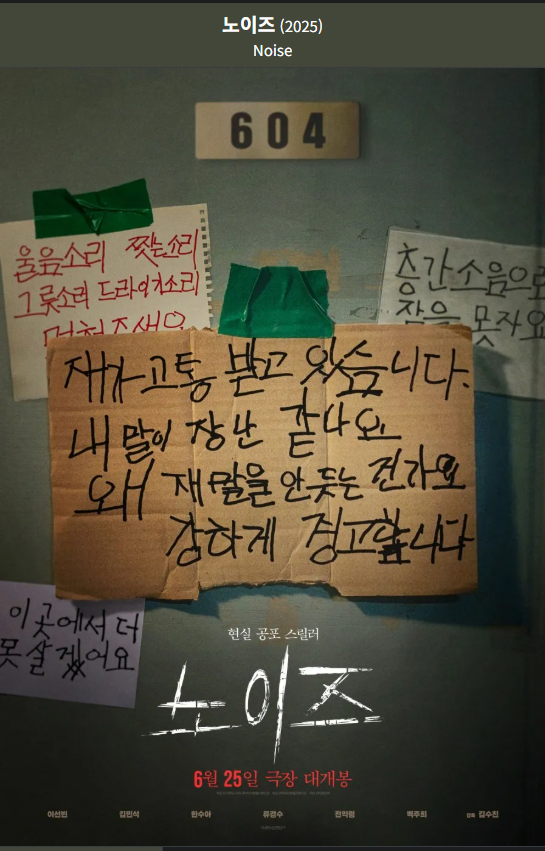 노이즈 (2025)
Noise
604
울음소리 찢는소리
그릇소리 드라이기소리
멈춰주세요
층간소음으로
잠을 못자요
재가 고통 받고 있습니다.
내 말이 장난 같나요
왜 재 말을 안 듣는 건가요
강하게 경고합니다
이곳에서 더
못살겠어요
현실 공포 스릴러
노이즈
6월 25일 극장 대개봉
이선빈 김민석 한수아 류경수 전익령 백주희 감독 김수진